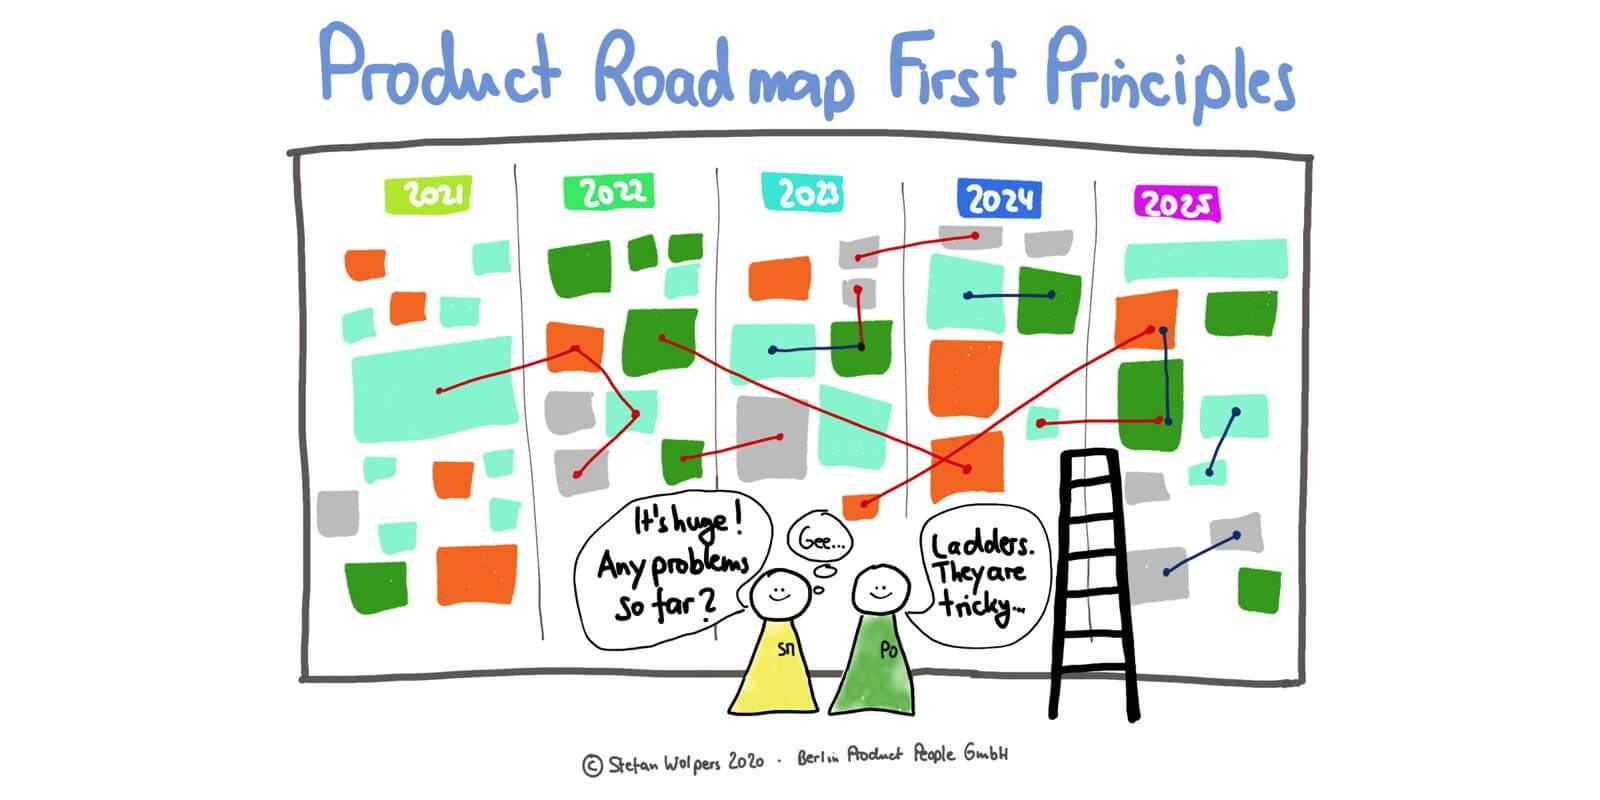 Product Roadmap First Principles
2021
2022
2023
2024
2025
It's huge!
Any problems
so far?
Gee...
Ladders.
They are
tricky...
Sn
Po
© Stefan Wolpers 2020 · Berlin Product People GmbH